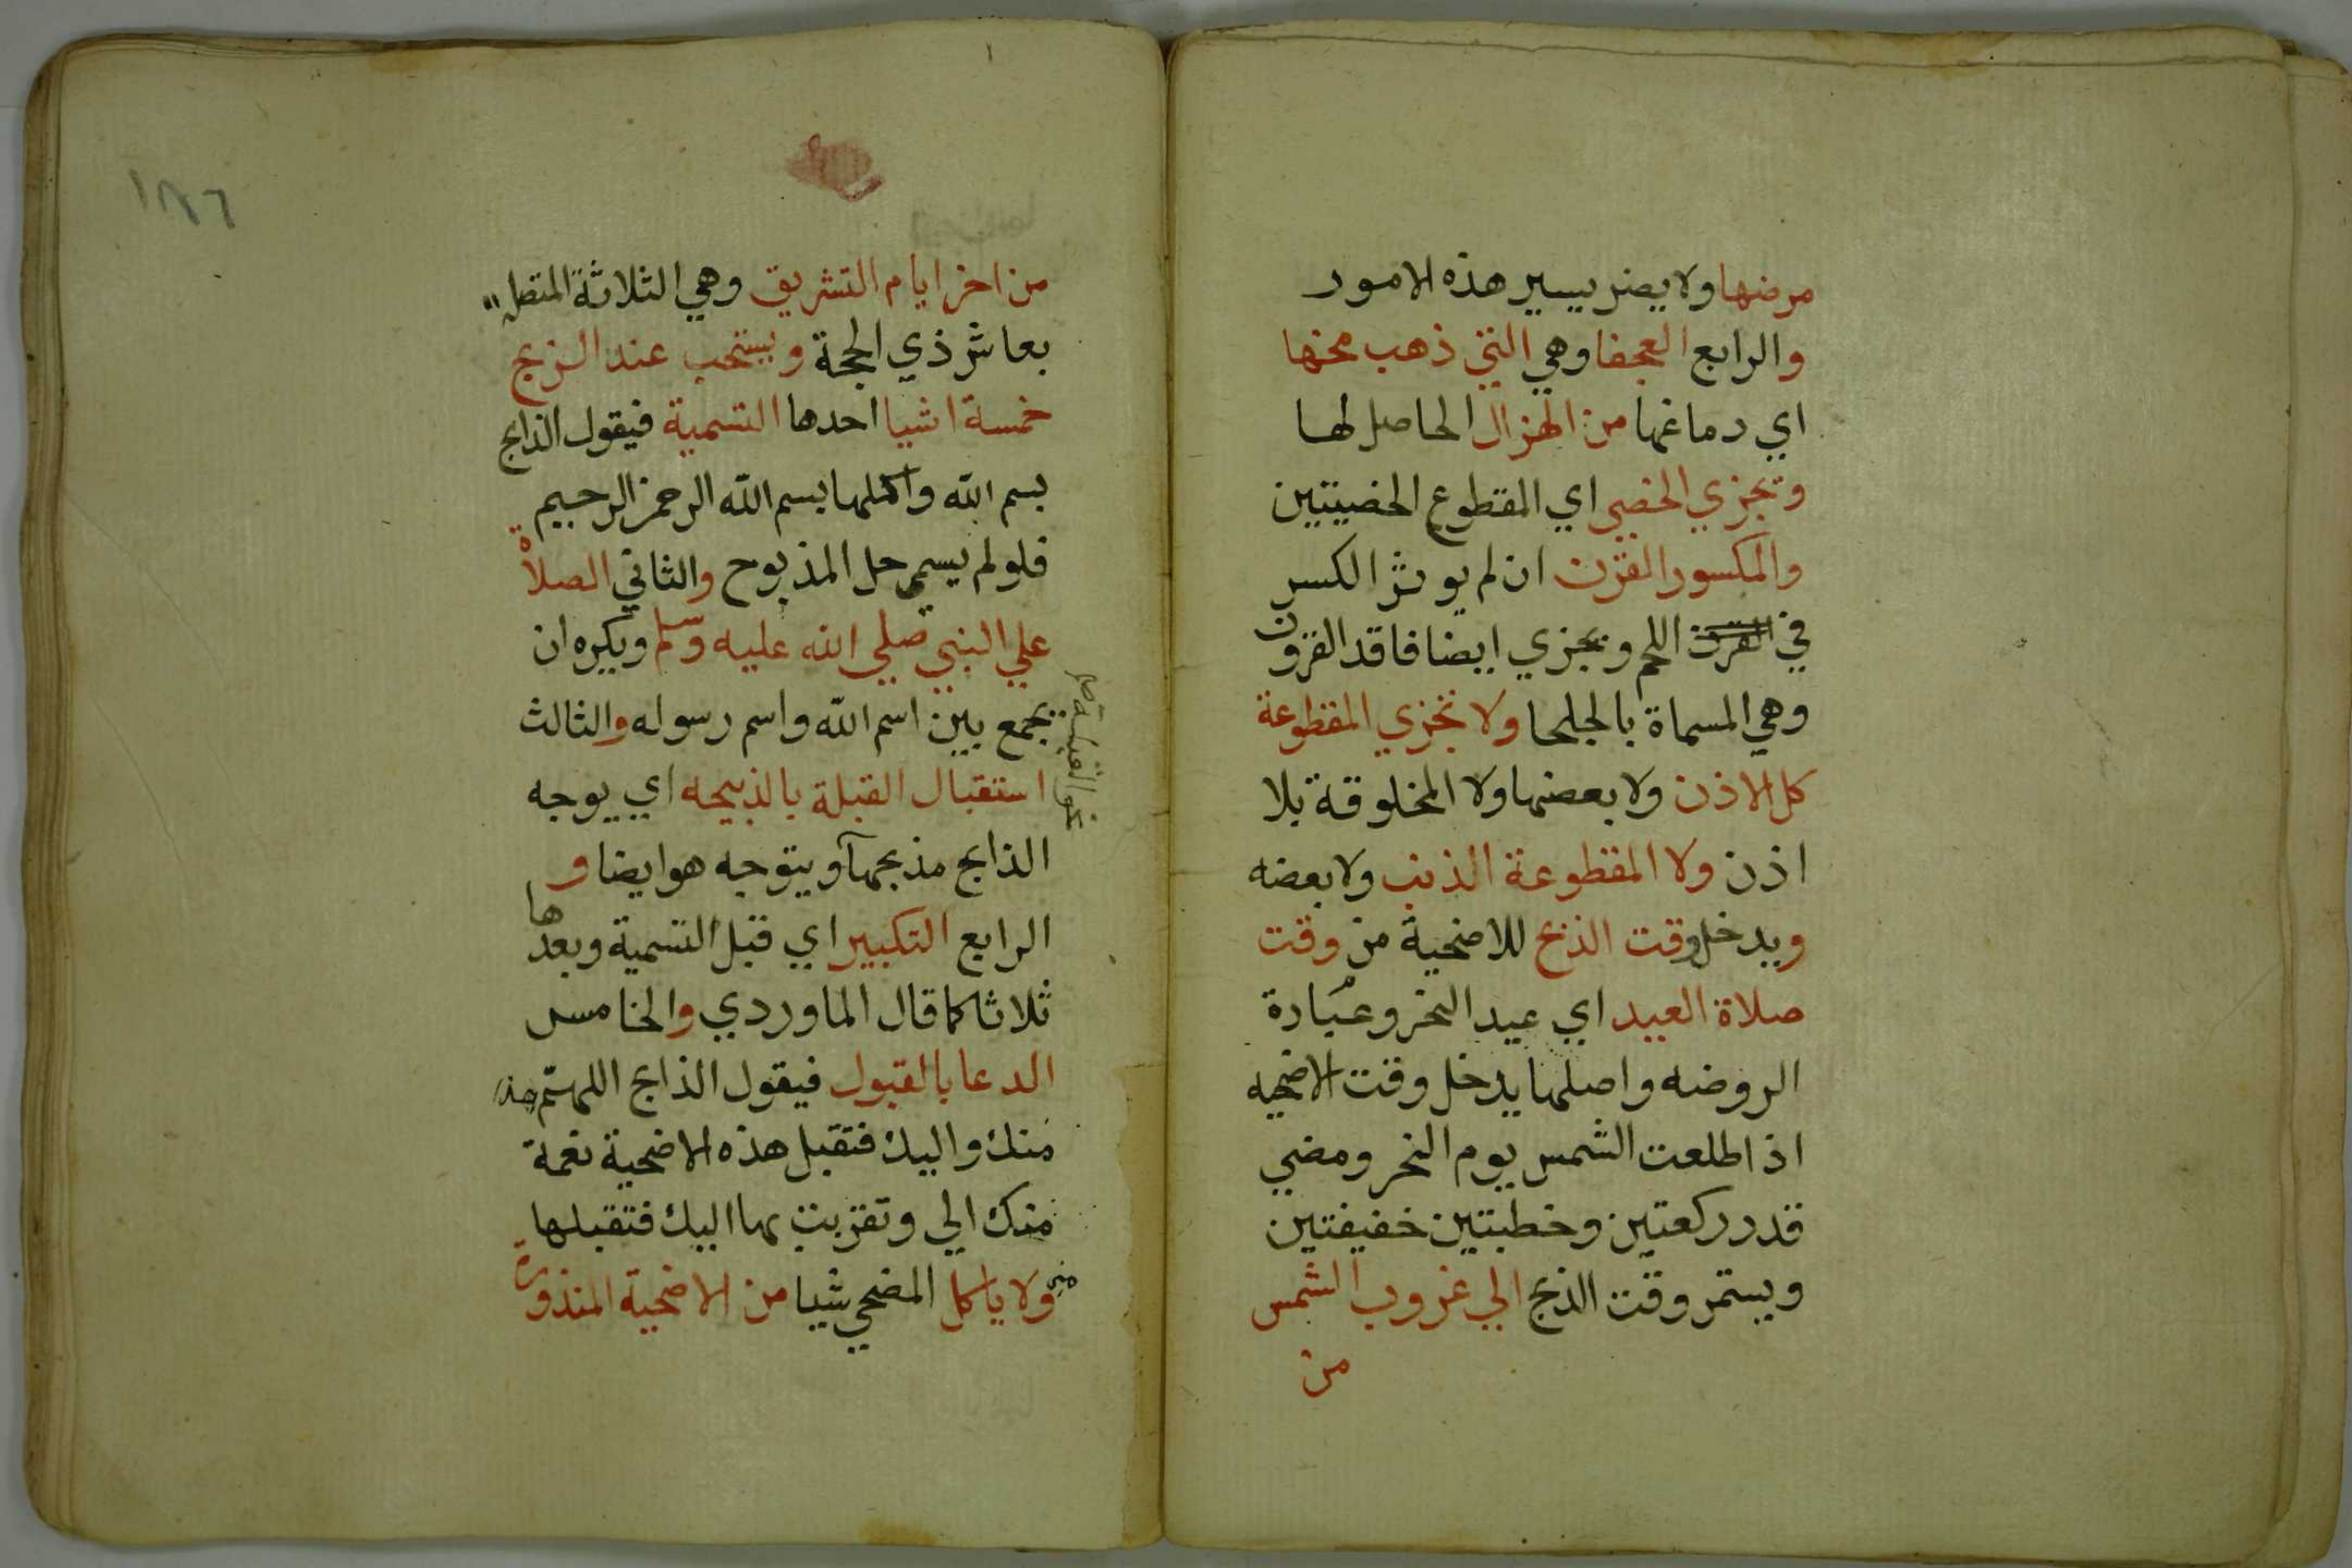 مرضها ولا يضر يسير هذه الامور
والرابع العجفا وهي التي ذهب مخها
اي دماغها من الهزال الحاصل لها
وتجزي الخصي اي المقطوع الخصيتين
والمكسور القرن ان لم يوثر الكسر
في القرن اللحم وتجزي ايضا فاقد القرون
وهي المسماة بالجلحا ولا تجزي المقطوعة
كل الاذن ولا بعضها ولا المخلوقة بلا
اذن ولا المقطوعة الذنب ولا بعضه
ويدخل وقت الذبح للاضحية من وقت
صلاة العيد اي عيد النحر وعبادة
الروضه واصلها يدخل وقت الاضحيه
اذا طلعت الشمس يوم النحر ومضي
قدر ركعتين وخطبتين خفيفتين
ويستمر وقت الذبح الي غروب الشمس
من
١٨٦
من اخر ايام التشريق وهي الثلاثة المتصله
بعاشر ذي الحجة ويستحب عند الذبح
خمسة اشيا احدها التسمية فيقول الذابح
بسم الله واكملها بسم الله الرحمن الرحيم
فلو لم يسم حل المذبوح والثاني الصلاة
علي النبي صلي الله عليه وسلم ويكره ان
يجمع بين اسم الله واسم رسوله والثالث
استقبال القبلة بالذبيحه اي يوجه
الذابح مذبحها ويتوجه هو ايضا و
الرابع التكبير اي قبل التسمية وبعدها
ثلاثا كما قال الماوردي والخامس
الدعا بالقبول فيقول الذابح اللهم هذه
منك واليك فتقبل هذه الاضحية نعمة
منك الي وتقربت بها اليك فتقبلها
مني ولا ياكل المضحي شيا من الاضحية المنذورة
نحو القبلة صح